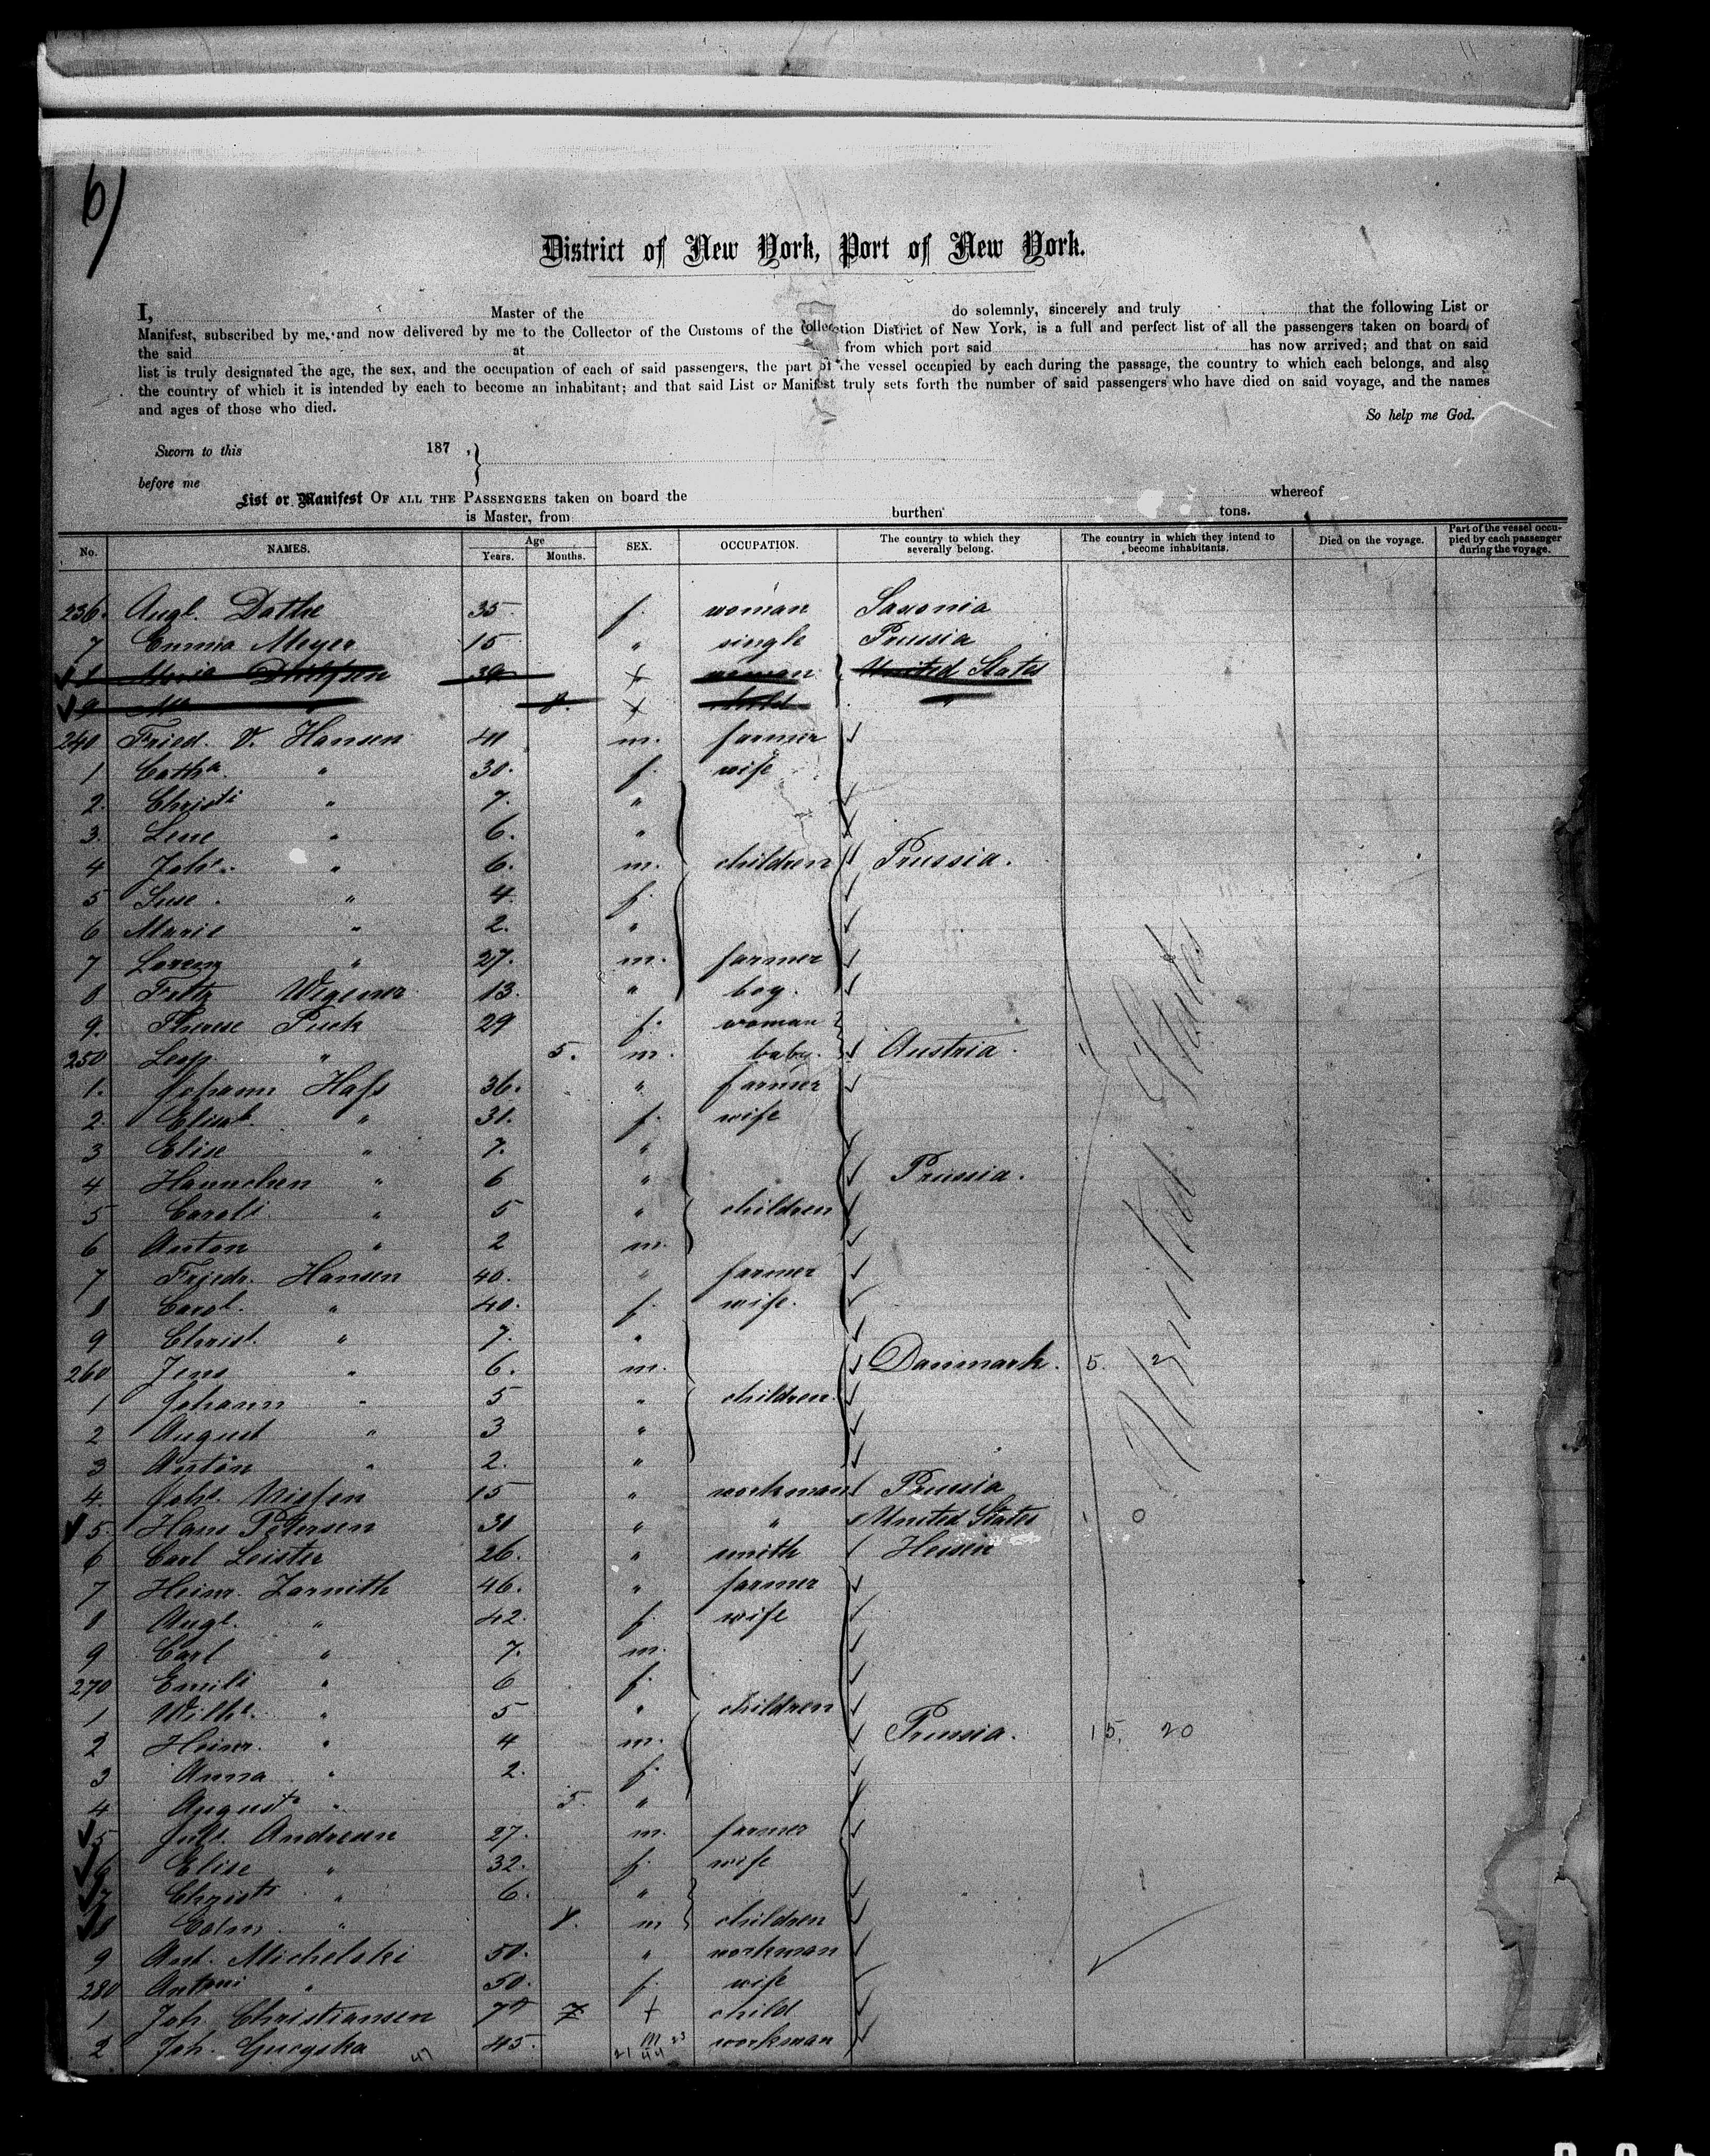 6)
District of New York, Port of New York.
I, Master of the do solemnly, sincerely and truly that the following List or
Manifest, subscribed by me, and now delivered by me to the Collector of the Customs of the Collection District of New York, is a full and perfect list of all the passengers taken on board of
the said at from which port said has now arrived; and that on said
list is truly designated the age, the sex, and the occupation of each of said passengers, the part of the vessel occupied by each during the passage, the country to which each belongs, and also
the country of which it is intended by each to become an inhabitant; and that said List or Manifest truly sets forth the number of said passengers who have died on said voyage, and the names
and ages of those who died.
So help me God.
Sworn to this 187 ,
before me
List or Manifest OF ALL THE PASSENGERS taken on board the whereof
is Master, from burthen tons.
No. NAMES. Age Years. Months. SEX. OCCUPATION. The country to which they severally belong. The country in which they intend to become inhabitants. Died on the voyage. Part of the vessel occupied by each passenger during the voyage.
236. Augl. Dathe 35 f. woman Saxonia
7 Emma Meyer 15 " single Prussia
8 Maria 30 woman United States
9 " 8. child "
240 Fried. V. Hansen 40 m. farmer
1 Catha. " 30. f. wife
2. Christi " 7. "
3. Lene " 6. "
4 Johs. " 6. m. children Prussia.
5 Suse. " 4 f.
6 Marie " 2. "
7 Lorenz " 27. m. farmer
8 Fritz Wegener 13. " boy.
9. Therese Puck 29 f. woman
250 Leop " 5. m. baby. Austria. 1 1
1. Johann Hass 36. " farmer
2. Elisab. " 31. f. wife
3 Elise " 7. "
4 Hannchen " 6 " Prussia.
5 Caroli " 5 " children
6 Anton " 2 m.
7 Friedr. Hansen 40. " farmer
8 Carol. " 40. f. wife.
9 Christ. " 7. "
260 Jens " 6. m. Danmark. 5. 2
1 Johann " 5 " children
2 August " 3 "
3 Anton " 2. "
4. Johs. Nissen 15 " workman Prussia
5. Hans Petersen 30 " " United States 1 0
6 Carl Leister 26. " smith Hessen
7 Heinr. Zarnith 46. " farmer
8 Augl. " 42. f. wife
9 Carl " 7. m.
270 Emili " 6 f.
1 Wilhe. " 5 " children
2 Heinr. " 4 m. Prussia. 15. 20
3 Anna " 2. f.
4 Auguste " 5. "
5 Juls. Andresen 27. m. farmer
6 Elise " 32. f. wife
7 Christi " 6. "
8 " 8. m children
9 Ant. Michelski 50. " workman
280 Antoni " 50. f. wife
1 Joh Christiansen 7 7 + child
2 Joh. 45. m workman
47 21 44 23
United States